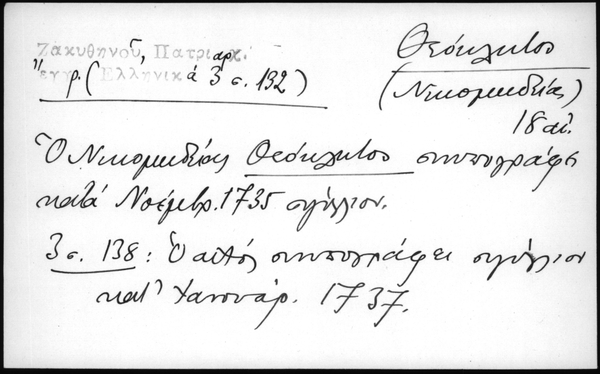 Ζακυθηνοῦ, Πατριαρχ.
ἔγγρ. (Ἑλληνικά 3 σ. 132)
Θεόκλητος
(Νικομηδείας)
18 αἰ.
Ὁ Νικομηδείας Θεόκλητος συνυπογράφει
κατά Νοέμβρ. 1735 σιγίλλιον.
3 σ. 138: Ὁ αὐτός συνυπογράφει σιγίλλιον
κατ' Ἰανουάρ. 1737.